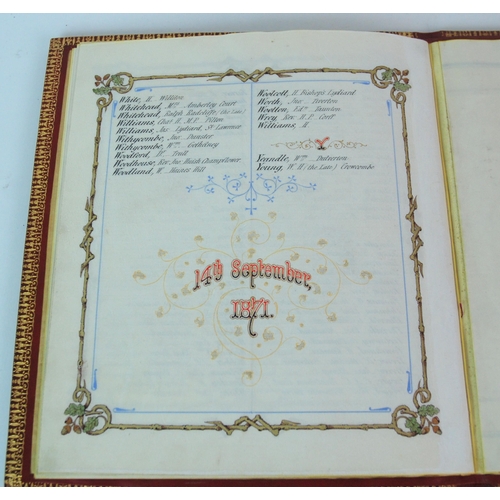 White, H. Williton
Whitehead, Mrs. Amberley Court
Whitehead, Ralph Radcliffe (the late)
Williams, Chas. H. M.P. Pilton
Williams, Jas. Lydiard St. Lawrence
Withycombe, Jno. Dunster
Withycombe, Wm. Gothelney
Woodford, Dr.
Woodhouse, Rev. Jno. Huish Champflower
Woodland, W. Haines Hill
Woolcott, H. Bishop's Lydeard
Worth, Jno. Treeton
Wootten, Edwd. Taunton
Wrey, Rev. H. B.
Williams, H.
Y
Yandle, Wm. Dulverton
Young, W. H. (the late) Crowcombe
14th September,
1871.